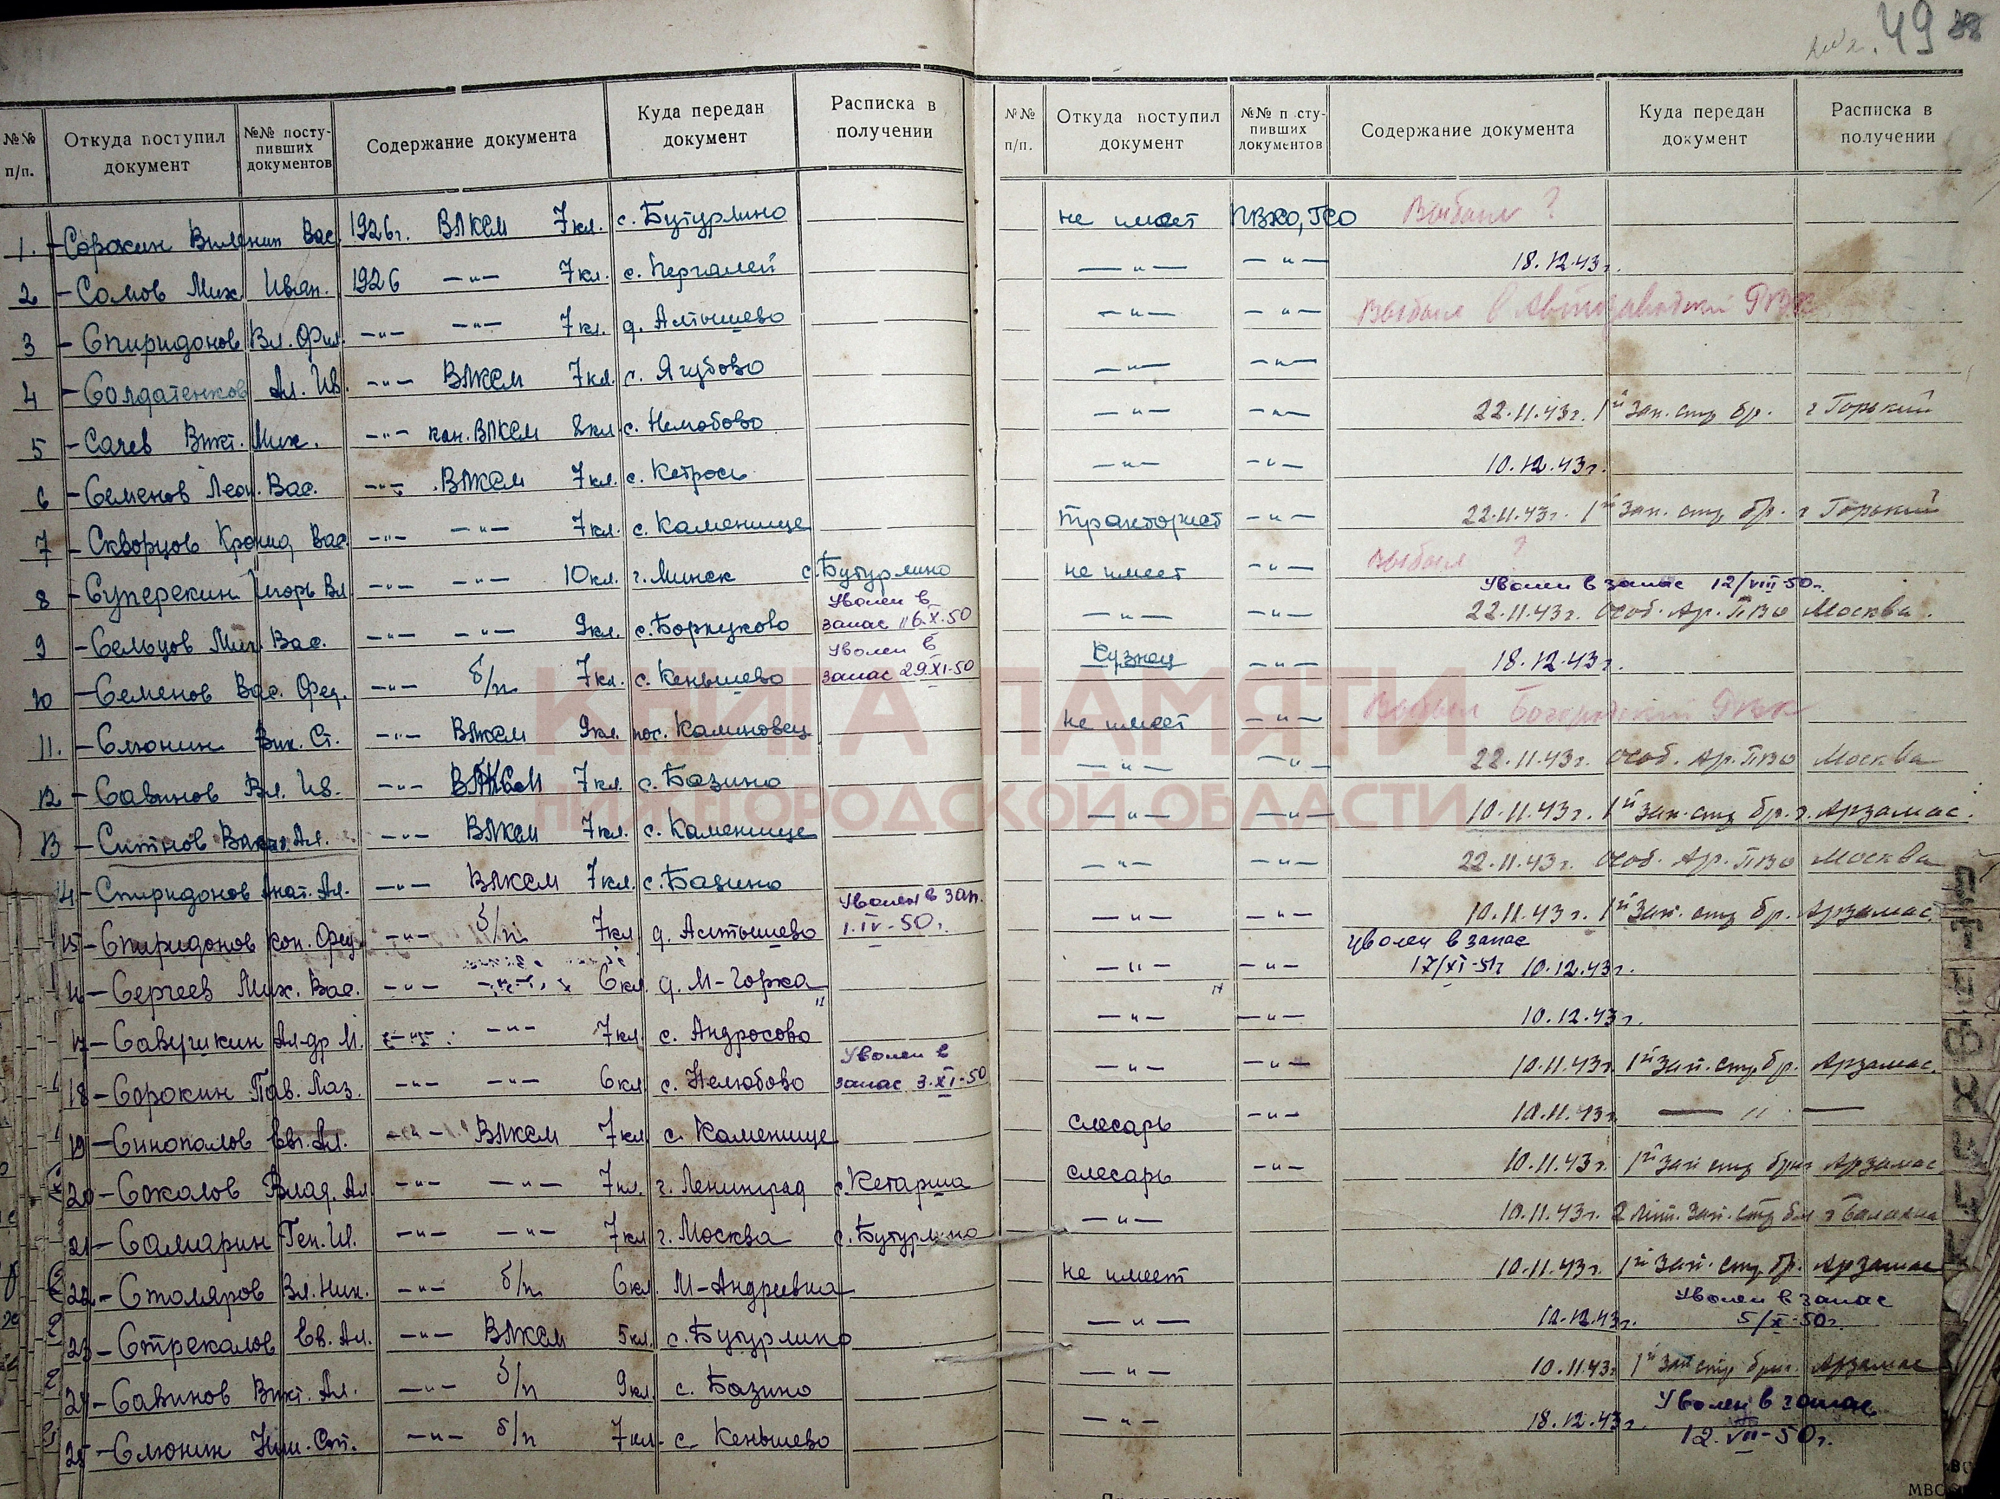 49
№№ п/п. Откуда поступил документ №№ поступивших документов Содержание документа Куда передан документ Расписка в получении
1. - Сорокин Виленин Вас. 1926г. ВЛКСМ 7 кл. с. Бутурлино
2 - Сомов Мих. Иван. 1926 -"- 7 кл. с.
3 - Спиридонов Вл. Фил. -"- -"- 7 кл. д. Алтышево
4 - Солдатенков Ал. Ив. -"- ВЛКСМ 7 кл. с. Ягубово
5 - Сачев Викт. Мих. -"- кан. ВЛКСМ 8 кл. с.
6 - Семенов Леон. Вас. -"- ВЛКСМ 7 кл. с. Кетрось
7 - Скворцов Кронид Вас. -"- -"- 7 кл. с. Каменище
8 - Суперекин Игорь Вл -"- -"- 10 кл. г. Минск с. Бутурлино
9 - Сельцов Мих. Вас. -"- -"- 9 кл. с. Борнуково Уволен в запас 16.X.50
10 - Семенов Вас. Фед. -"- б/п 7 кл. с. Кеньшево Уволен в запас 29.XI.50
11. - Слюнин Вик. Ст. -"- ВЛКСМ 9 кл. пос. Калиновец
12 - Савинов Вл. Ив. -"- ВЛКСМ 7 кл. с. Базино
13 - Ситнов Ал. -"- ВЛКСМ 7 кл. с. Каменище
14 - Спиридонов Анат. Ал. -"- ВЛКСМ 7 кл. с. Базино
15 - Спиридонов Кон. Фед -"- б/п 7 кл д. Алтышево Уволен в зап. 1.IV-50г.
16 - Сергеев Мих. Вас. -"- 6 кл д. М-Горка
17 - Савушкин Ал-др М. -"- -"- 7 кл с. Андросово
18 - Сорокин Пав. Лаз. -"- -"- 6 кл с. Нелюбово Уволен в запас 3.XI-50
19 - Синопалов Евг. Ал. -"- ВЛКСМ 7 кл с. Каменище
20 - Соколов Влад. Ал -"- -"- 7 кл. г. Ленинград с. Кетарша
21 - Самарин Ген. Ив. -"- -"- 7 кл г. Москва с. Бутурлино
22 - Столяров Вл. Ник. -"- б/п. 6 кл. М-Андреевка
23 - Стрекалов Ев. Ал. -"- ВЛКСМ 5 кл. с. Бутурлино
24 - Савинов Викт. Ал. -"- б/п 9 кл. с. Базино
25 - Слюнин Ст. -"- б/п 7 кл. с. Кеньшево
№№ п/п. Откуда поступил документ №№ поступивших документов Содержание документа Куда передан документ Расписка в получении
не имеет ПВХО, ГСО Выбыл ?
-"- -"- 18.12.43г.
-"- -"- Выбыл в Автозаводский РВК
-"- -"-
-"- -"- 22.11.43г. 1й Зап. стр бр. г Горький
-"- -"- 10.12.43г.
тракторист -"- 22.11.43г. 1й Зап. стр бр. г Горький
не имеет -"- Выбыл ? Уволен в запас 12/VIII-50г.
-"- -"- 22.11.43г. Особ. Ар. ПВО Москва.
Кузнец -"- 18.12.43г.
не имеет -"- Выбыл Богородский РВК
-"- -"- 22.11.43г. Особ. Ар. ПВО Москва
-"- -"- 10.11.43г. 1й Зап. стр бр. г. Арзамас.
-"- -"- 22.11.43г. Особ. Ар. ПВО Москва
-"- -"- 10.11.43г. 1й Зап. стр бр. Арзамас.
-"- -"- Уволен в запас 17/XI-51г 10.12.43г.
-"- -"- 10.12.43г.
-"- -"- 10.11.43г. 1й Зап. стр. бр. Арзамас.
слесарь -"- 10.11.43г. -"-
слесарь -"- 10.11.43г. 1й Зап стр бр Арзамас
-"- 10.11.43г. Зап. стр г Балахна
не имеет 10.11.43г. 1й Зап. стр. бр. Арзамас
-"- 12.12.43г. Уволен в запас 5/X-50г.
-"- 10.11.43г 1й Зап стр бриг. Арзамас
-"- 18.12.43г. Уволен в запас 12.VII-50г.
КНИГА ПАМЯТИ
НИЖЕГОРОДСКОЙ ОБЛАСТИ